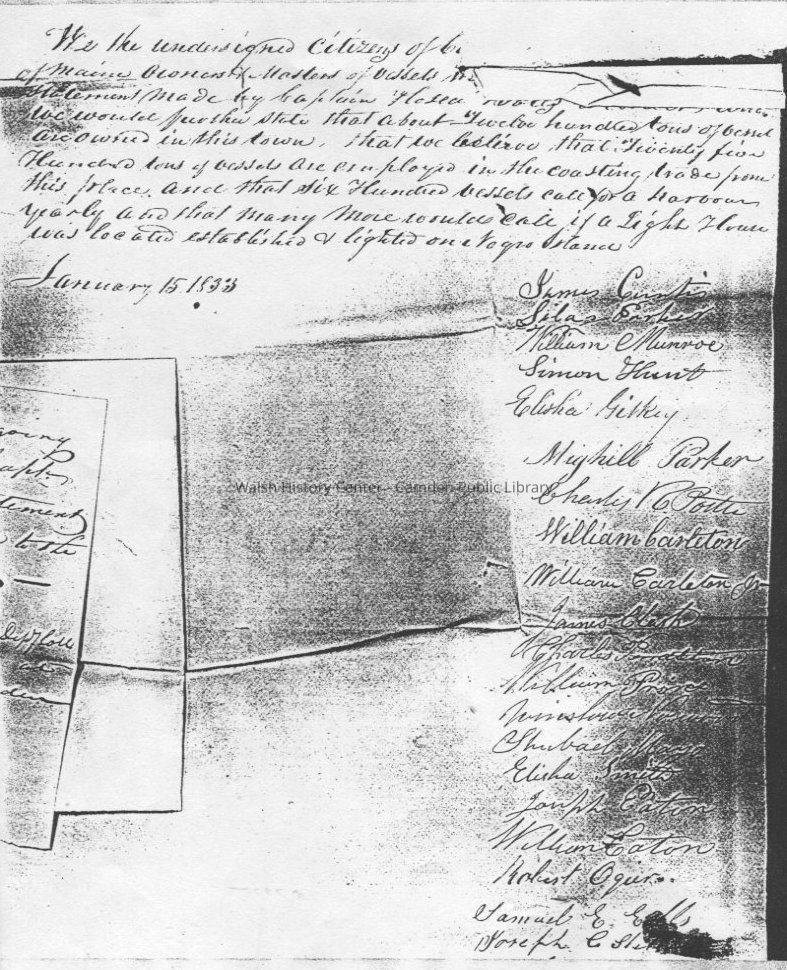 We the undersigned Citizens of
of Maine Owners & Masters of Vessels
Statement made by Captain Hosea
we would further state that about Twelve hundred tons of vessel
are owned in this town, that we believe that Twenty five
Hundred tons of vessels are employed in the coasting trade from
this place. and that six Hundred vessels call for a Harbour
yearly and that many more would call if a Light House
was located established & lighted on Negro Island
January 15 1833
James Curtis
Silas
William Munroe
Simon Hunt
Elisha Gilkey
Mighill Parker
Charles K Porter
William Carleton
William Carleton Jr
James Clark
Charles
William Price
Winslow
Shubael
Elisha Smith
Joseph Eaton
William Eaton
Robert Ogier
Samuel E. Eells
Joseph C
going
Capt.
tement
to the
Dep Coll
Walsh History Center - Camden Public Library